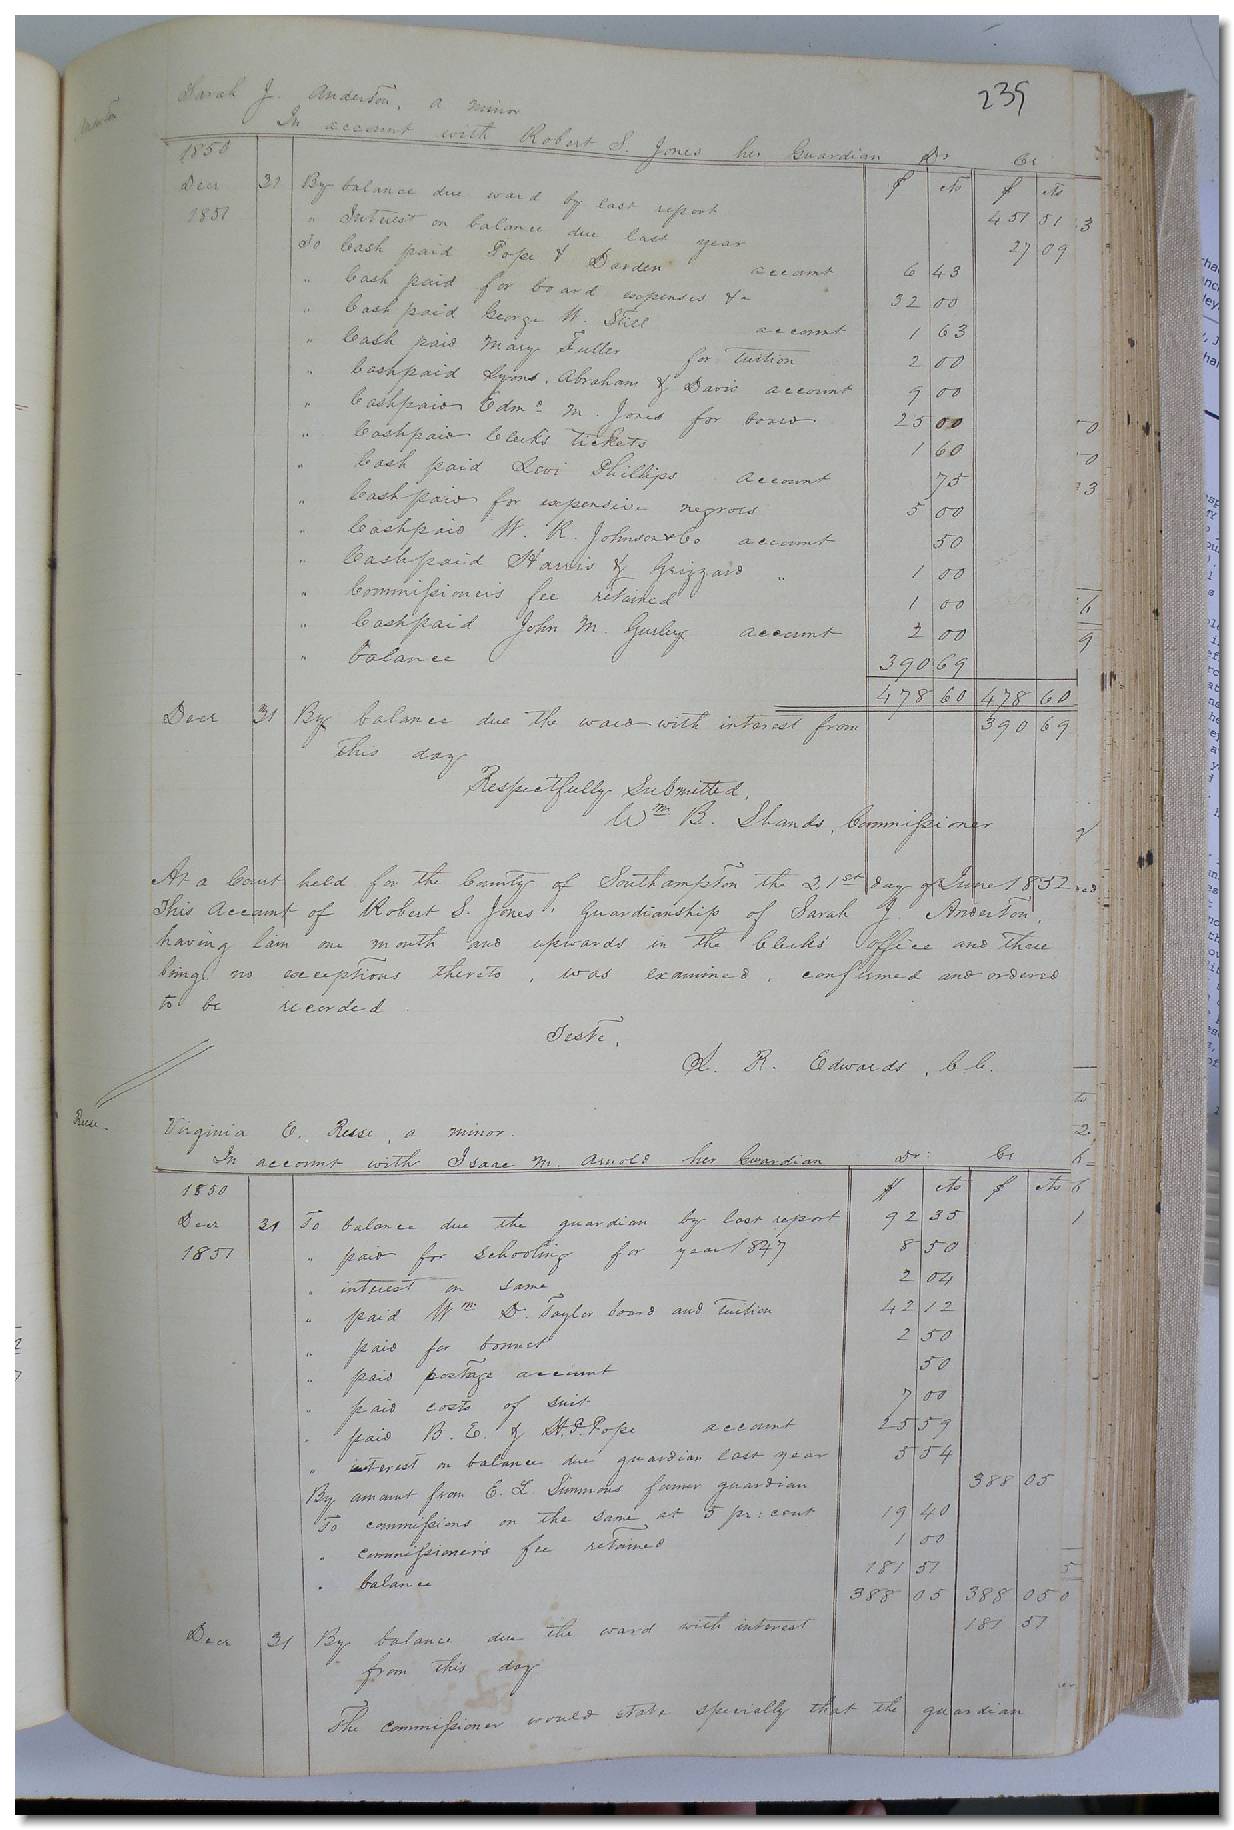 239
Sarah J. Anderton, a minor
In account with Robert S. Jones her Guardian Dr Cr
1850 $ cts $ cts
Decr 31 By balance due ward by last report 451 51
1851 " Interest on balance due last year 27 09
To Cash paid Pope & Darden account 6 43
" Cash paid for board expenses &c 32 00
" Cash paid George W. Still account 1 63
" Cash paid Mary Fuller for Tuition 2 00
" Cash paid Lyons, Abraham & Davis account 9 00
" Cash paid Edmd M. Jones for board 25 00
" Cash paid Clerks tickets 1 60
" Cash paid Levi Phillips account 75
" Cash paid for expensive negroes 5 00
" Cash paid W. R. Johnson & Co account 50
" Cash paid Harris & Grizzard " 1 00
" Commissioners fee retained 1 00
" Cash paid John M. Gurley account 2 00
" balance 390 69
478 60 478 60
Decr 31 By balance due the ward with interest from 390 69
this day
Respectfully Submitted,
Wm B. Shands, Commissioner
At a Court held for the County of Southampton the 21st day of June 1852
This Account of Robert S. Jones' Guardianship of Sarah J. Anderton,
having lain one month and upwards in the Clerks office and there
being no exceptions thereto, was examined, confirmed and ordered
to be recorded
Teste,
L. R. Edwards, C C.
Reese.
Virginia E. Reese, a minor.
In account with Isaac M. Arnold her Guardian Dr: Cr
1850 $ cts $ cts
Decr 31 To balance due the guardian by last report 92 35
1851 " paid for schooling for year 1847 8 50
" interest on same 2 04
" paid Wm D. Taylor board and tuition 42 12
" paid for bonnet 2 50
" paid postage account 50
" paid costs of suit 7 00
" paid B. E. & H. P. Pope account 25 59
" interest on balance due guardian last year 5 54
By amount from E. L. Simmons former guardian 388 05
To commissions on the same at 5 pr: cent 19 40
" commissioner's fee retained 1 50
" balance 181 51
388 05 388 05
Decr 31 By balance due the ward with interest 181 51
from this day
The commissioner would state specially that the guardian